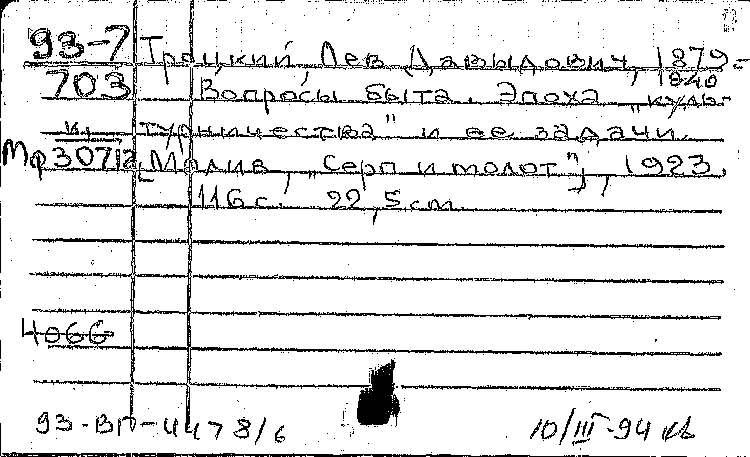 93-7 Троцкий, Лев Давыдович, 1879-
703 1940
Вопросы быта. Эпоха „куль-
турничества" и ее задачи.
Мф 30712 [М., „Серп и молот"], 1923.
116 с. 22,5 cm.
4066
93-ВП-4478/6 10/III-94